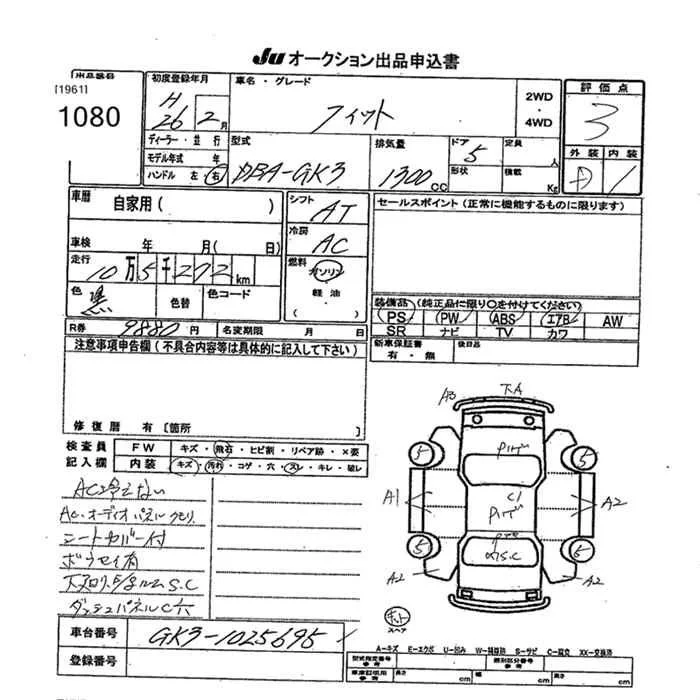 Ju オークション出品申込書
出品番号
[1961]
1080
初度登録年月
H 26 2月
車名・グレード
フィット
2WD
・
4WD
評価点
3
外装 内装
D 1
ディーラー・並行
モデル年式 年
ハンドル 左・右
型式
DBA-GK3
排気量
1300 CC
ドア
5
形状
定員
人
積載
Kg
車歴
自家用( )
車検 年 月( 日)
走行
10万5千272km
色
黒
色替
色コード
シフト
AT
冷房
AC
燃料
ガソリン
軽油
( )
セールスポイント(正常に機能するものに限ります)
装備品(純正品に限り○を付けてください)
PS PW ABS エアB AW
SR ナビ TV カワ
新車保証書
有・無
後日品
R券 9880円 名変期限 月 日
注意事項申告欄(不具合内容等は具体的に記入して下さい)
修復暦 有〔箇所 〕
検査員
記入欄
FW キズ・飛石・ヒビ割・リペア跡・X要
内装 キズ・汚れ・コゲ・穴・スレ・キレ・破レ
AC冷えない
AC・オーディオパネルクモリ
シートカバー付
ダッシュパネルC穴
A3 下A
5 5
A1 C1 A2
5 5
A2 A2
スペア
車台番号 GK3-1025695
登録番号
A-キズ E-エクボ U-凹み W-補修跡 S-サビ C-腐食 XX-交換済
型式指定番号
参考
類別区分番号
参考
車庫証明用
参考
長さ cm 幅 cm 高さ cm